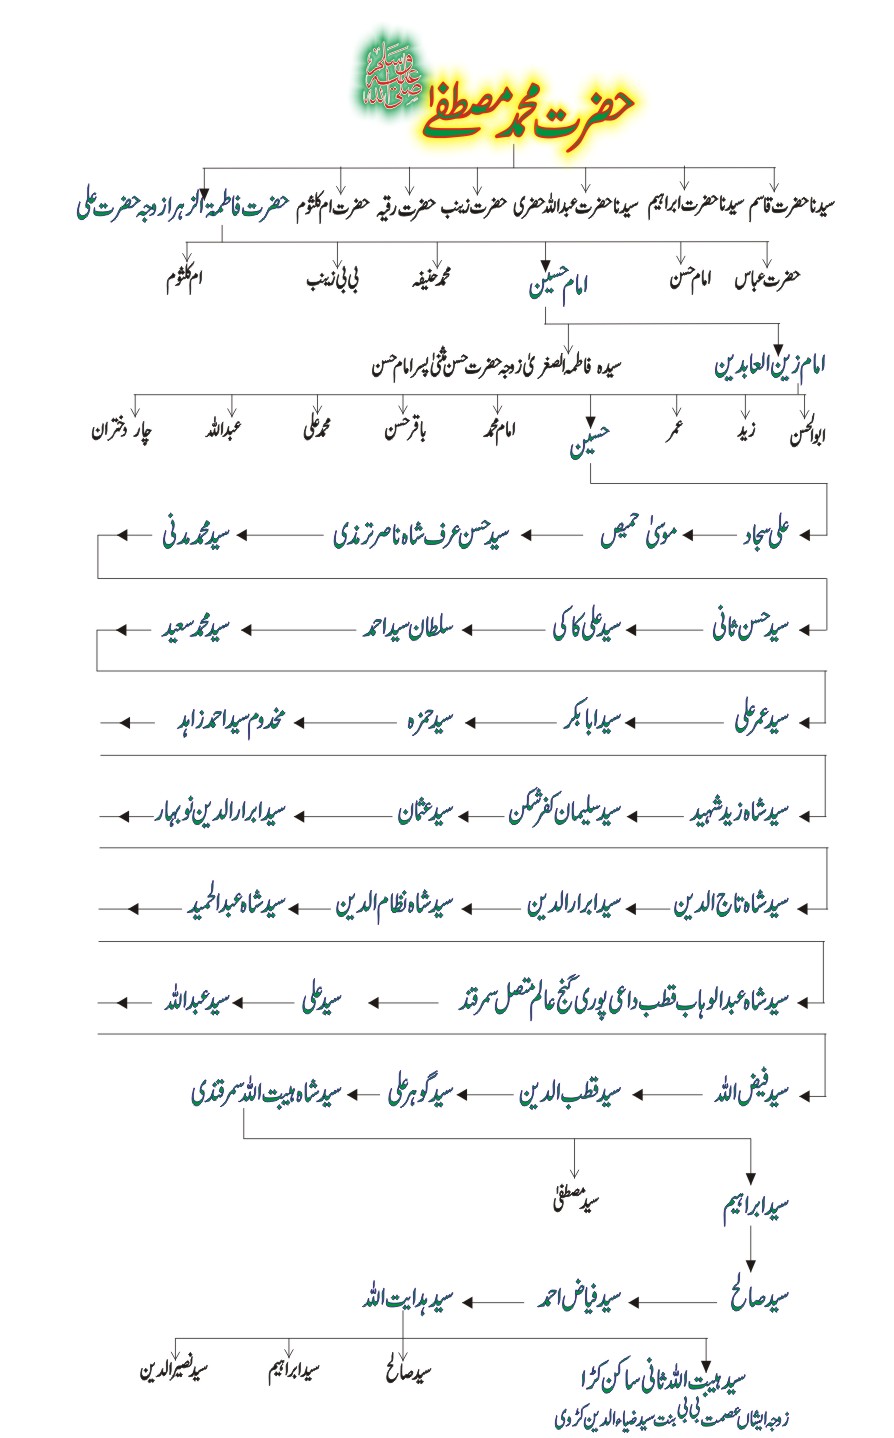 حضرت محمد مصطفےٰ ﷺ
سیدنا حضرت قاسم سیدنا حضرت ابراہیم سیدنا حضرت عبداللہ حضری حضرت زینب حضرت رقیہ حضرت ام کلثوم حضرت فاطمۃ الزہرا زوجہ حضرت علی
حضرت عباس امام حسن امام حسین محمد حنیفہ بی بی زینب ام کلثوم
امام زین العابدین سیدہ فاطمہ الصغریٰ زوجہ حضرت حسن مثنیٰ پسر امام حسن
ابوالحسن زید عمر حسین امام محمد باقر حسن محمد علی عبداللہ چار دختران
علی سجاد موسیٰ حمیص سید حسن عرف شاہ ناصر ترمذی سید محمد مدنی
سید حسن ثانی سید علی کاکی سلطان سید احمد سید محمد سعید
سید عمر علی سید ابابکر سید حمزہ مخدوم سید احمد زاہد
سید شاہ زید شہید سید سلیمان کفر شکن سید عثمان سید ابرار الدین نوبہار
سید شاہ تاج الدین سید ابرار الدین سید شاہ نظام الدین سید شاہ عبدالحمید
سید شاہ عبدالوہاب قطب داعی پوری گنج عالم متصل سمرقند سید علی سید عبداللہ
سید فیض اللہ سید قطب الدین سید گوہر علی سید شاہ ہیبت اللہ سمرقندی
سید ابراہیم سید مصطفیٰ
سید صالح سید فیاض احمد سید ہدایت اللہ
سید ہیبت اللہ ثانی ساکن کڑا سید صالح سید ابراہیم سید نصیر الدین
زوجہ ایشاں عصمت بی بی بنت سید ضیاء الدین کڑوی